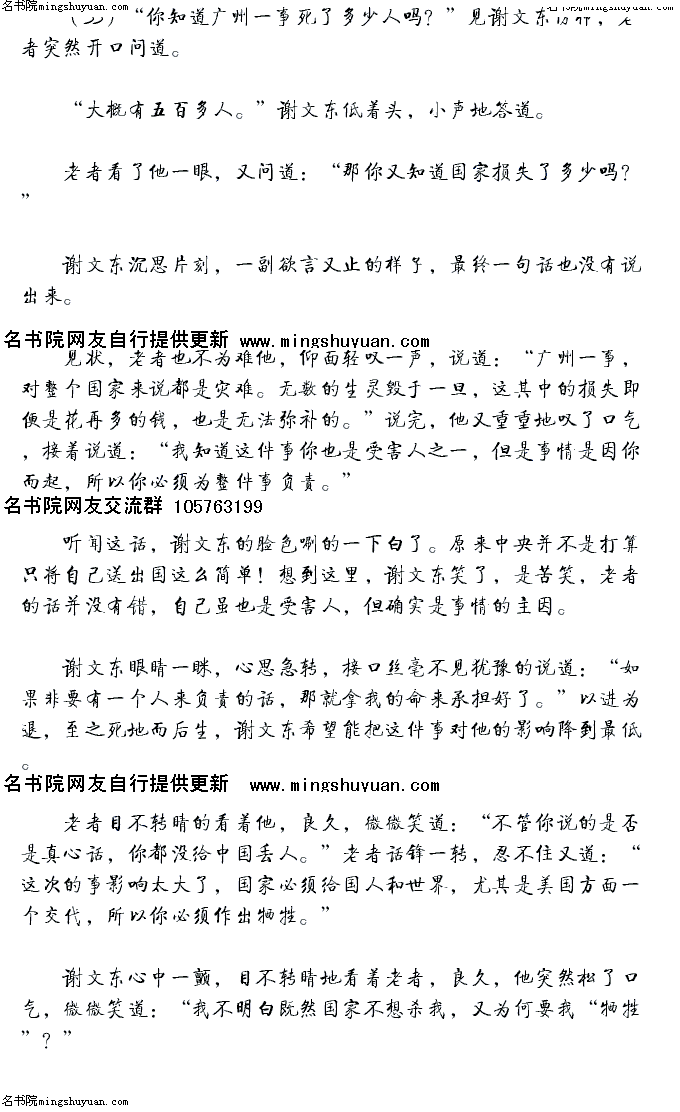 名书院mingshuyuan.com
名书院mingshuyuan.com
“你知道广州一事死了多少人吗？”见谢文东
者突然开口问道。
“大概有五百多人。”谢文东低着头，小声地答道。
老者看了他一眼，又问道：“那你又知道国家损失了多少吗？
”
谢文东沉思片刻，一副欲言又止的样子，最终一句话也没有说
出来。
名书院网友自行提供更新 www.mingshuyuan.com
见状，老者也不为难他，仰面轻叹一声，说道：“广州一事，
对整个国家来说都是灾难。无数的生灵毁于一旦，这其中的损失即
便是花再多的钱，也是无法弥补的。”说完，他又重重地叹了口气
，接着说道：“我知道这件事你也是受害人之一，但是事情是因你
而起，所以你必须为整件事负责。”
名书院网友交流群 105763199
听闻这话，谢文东的脸色唰的一下白了。原来中央并不是打算
只将自己送出国这么简单！想到这里，谢文东笑了，是苦笑，老者
的话并没有错，自己虽也是受害人，但确实是事情的主因。
谢文东眼睛一眯，心思急转，接口丝毫不见犹豫的说道：“如
果非要有一个人来负责的话，那就拿我的命来承担好了。”以进为
退，至之死地而后生，谢文东希望能把这件事对他的影响降到最低
。
名书院网友自行提供更新 www.mingshuyuan.com
老者目不转晴的看着他，良久，微微笑道：“不管你说的是否
是真心话，你都没给中国丢人。”老者话锋一转，忍不住又道：“
这次的事影响太大了，国家必须给国人和世界，尤其是美国方面一
个交代，所以你必须作出牺牲。”
谢文东心中一颤，目不转晴地看着老者，良久，他突然松了口
气，微微笑道：“我不明白既然国家不想杀我，又为何要我“牺牲
”？”
名书院mingshuyuan.com
名书院mingshuyuan.com